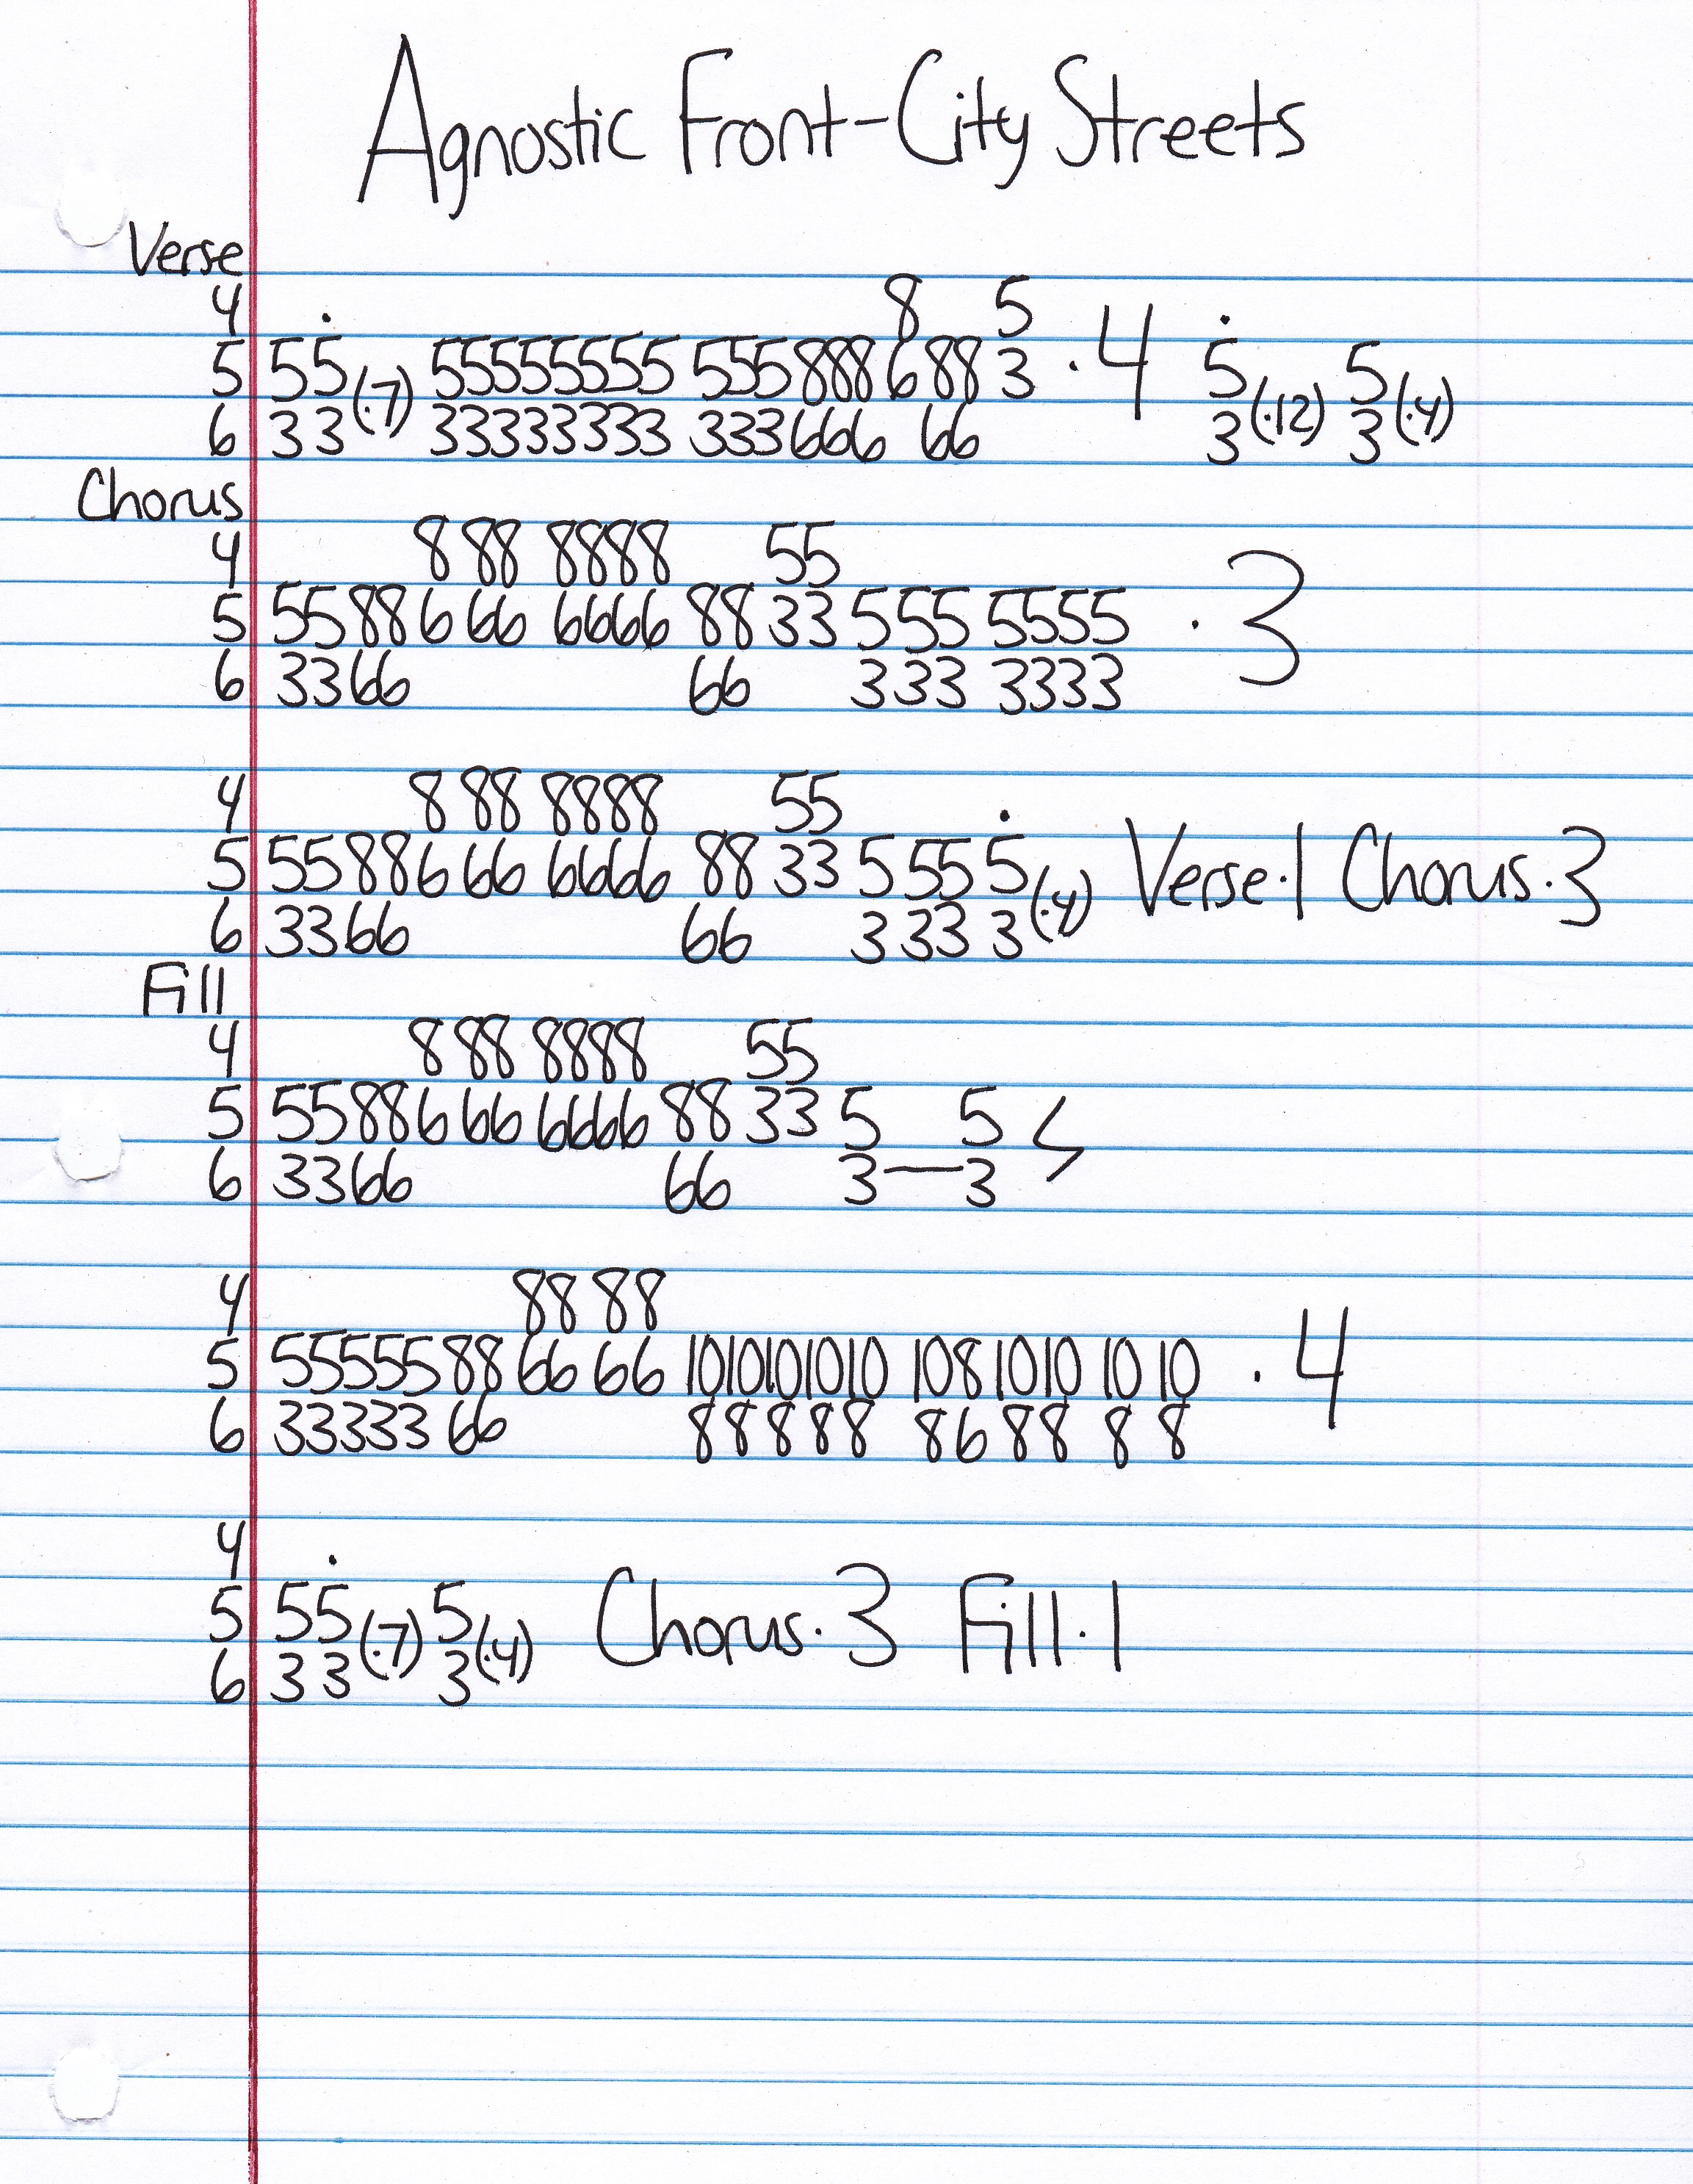 Agnostic Front-City Streets
Verse
4 8 5
5 55(·7) 55555555 555888688 3 ·4 5(·12) 5(·4)
6 33 33333333 333666 66 3 3
Chorus
4 8 88 8888 55
5 5588666 6666 8833555 5555 ·3
6 3366 66 333 3333
4 8 88 8888 55
5 5588666 6666 88 33 5 55 5(·4) Verse·1 Chorus·3
6 3366 66 3 33 3
Fill
4 8 88 8888 55
5 5588666 6666 88 33 5 5 <
6 3366 66 3—3
4 88 88
5 555558866 66 1010101010 1081010 10 10 ·4
6 33333 66 88888 8688 8 8
4
5 55(·7) 5(·4) Chorus·3 Fill·1
6 33 3